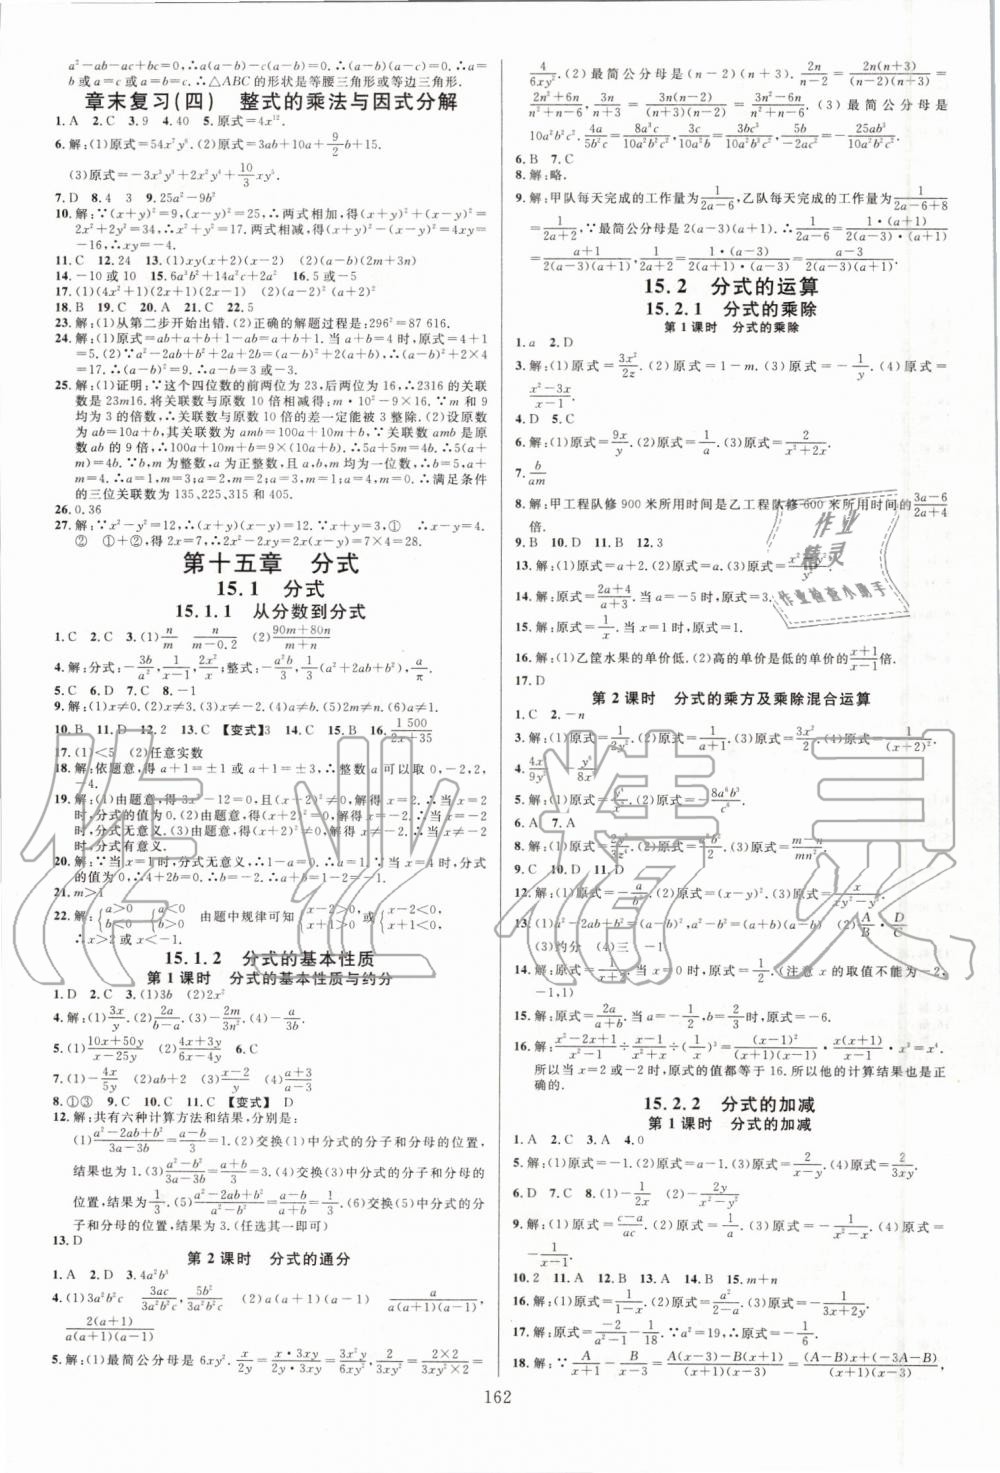 a²-ab-ac+bc=0,∴a(a-b)-c(a-b)=0.∴(a-b)(a-c)=0.∴a=
b或a=c或a=b=c.∴△ABC的形状是等腰三角形或等边三角形.
章末复习(四) 整式的乘法与因式分解
1.A 2.C 3.9 4.40 5.原式=4x¹².
6.解:(1)原式=54x⁷y⁸.(2)原式=3ab+10a+9/2b+15.
(3)原式=-3x³y³+2x²y⁴+10/3xy⁵.
7.D 8.4 3 9.25a²-9b²
10.解:∵(x+y)²=9,(x-y)²=25,∴两式相加,得(x+y)²+(x-y)²=
2x²+2y²=34,∴x²+y²=17.两式相减,得(x+y)²-(x-y)²=4xy=
-16,∴xy=-4.
11.C 12.24 13.(1)xy(x+2)(x-2) (2)(a-b)(2m+3n)
14.-10或10 15.6a³b²+14a²c+2a² 16.5或-5
17.(1)(4x²+1)(2x+1)(2x-1) (2)(a-2)²(a+2)²
18.B 19.C 20.A 21.C 22.5
23.解:(1)从第二步开始出错.(2)正确的解题过程是:296²=87 616.
24.解:(1)原式=ab+a+b+1-ab=a+b+1.当a+b=4时,原式=4+1
=5.(2)∵a²-2ab+b²+2a-2b+1=(a-b)²+2(a-b)+1=(a-b+1)².
25.解:(1)证明:∵这个四位数的前两位为23,后两位为16,∴2316的关联
数是23m16.将关联数与原数10倍相减得:m·10²-9×16.∵m和9
均为3的倍数,∴关联数与原数10倍的差一定能被3整除.(2)设原数
为ab=10a+b,其关联数为amb=100a+10m+b,∵关联数amb是原
数ab的9倍,∴100a+10m+b=9×(10a+b).∴5a+5m=4b.∴4(b-
m)=5a+m.∵b,m为正整数且a,b,m均为一位数,∴
a=1,m=3;a=2,m=2;a=3,m=1;a=4,m=0.∴满足条件
的三位关联数为135、225、315和405.
26.0.36
27.解:∵x²-y²=12,∴(x+y)(x-y)=12.∵x+y=3,① ∴x-y=4.
② ①+②,得2x=7,∴2x²-2xy=2x(x-y)=7×4=28.
第十五章 分式
15.1 分式
15.1.1 从分数到分式
1.C 2.C 3.(1)n/m n/(m-0.2) (2)(90m+80n)/(m+n)
4.解:分式:-3b/a²,1/(x-1),2x²/x;整式:-a²b/3,1/3(a²+2ab+b²),a/π.
5.C 6.D 7.C 8.-1
9.解:(1)x≠0.(2)x≠3.(3)x≠-2.(4)x≠5.(5)x≠0.(6)a≠1.
10.B 11.D 12.2 13.C【变式】3 14.C 15.B 16.1 500/(2x+35)
17.(1)<5 (2)任意实数
18.解:依题意,得a+1=±1或a+1=±3,∴整数a可以取0,-2,2,
-4.
19.解:(1)由题意,得3x²-12=0,解得x=2.∴当x=2
时,分式的值为0.(2)由题意,得x+2=0,解得x=-2
时,分式无意义.
时,分式有意义.
20.解:∵当x=1时,分式无意义,∴1-a=0.∴当x=4时,分式
的值为0,∴4+2b=0.∴b=-2.∴a+b=1-2=-1.
21.m>1
22.解:{a>0 b>0或{a<0 b<0 由题中规律可知{x-2>0, x+1>0或{x-2<0, x+1<0,
∴x>2或x<-1.
15.1.2 分式的基本性质
第1课时 分式的基本性质与约分
1.D 2.C 3.(1)3b (2)2x²
4.解:(1)3x/y.(2)2a/(b-a).(3)-2m/3n².(4)-a/3b.
5.(1)(10x+50y)/(x-25y) (2)(4x+3y)/(6x-4y) 6.C
7.(1)-4x/5y (2)-2 (3)(x-2)/y (4)(a+3)/(a-3)
8.①③ 9.C 10.C 11.C【变式】D
12.解:共有六种计算方法和结果,分别是:
(1)(a²-2ab+b²)/(3a-3b)=(a-b)/3.(2)交换(1)中分式的分子和分母的位置,
结果也为1.(3)(a²-b²)/(3a-3b)=(a+b)/3.(4)交换(3)中分式的分子和分母的
位置,结果为1/3.(5)(a²-2ab+b²)/(a²-b²)=(a-b)/(a+b)=1/3.(6)交换(5)中分式的分
子和分母的位置,结果为3.(任选其一即可)
13.D
第2课时 分式的通分
1.A 2.D 3.4a²b³
4.(1)3a²b²c 3ac/3a²b²c,5b²/3a²b²c (2)a(a+1)(a-1) a/(a(a+1)(a-1)),
2(a+1)/(a(a+1)(a-1))
5.解:(1)最简公分母是6xy². x/2y=(x·3xy)/(2y·3xy)=3x²y/6xy²,2/3xy²=(2×2)/(3xy²×2)=
4/6xy².(2)最简公分母是(n-2)(n+3). 2n/(n-2)=2n(n+3)/((n-2)(n+3))=
(2n²+6n)/(n²+n-6),3n/(n+3)=3n(n-2)/((n+3)(n-2))=(3n²-6n)/(n²+n-6).(3)最简公分母是
10a²b²c². 4a/5b²c=8a³c/10a²b²c²,3c/10a²b=3bc³/10a²b²c²,5b/(-2ac²)=-25ab³/10a²b²c².
6.B 7.C
8.解:略.
9.解:甲队每天完成的工作量为1/(2a-6),乙队每天完成的工作量为1/(2a-6+8)=
1/(2a+2),∵最简公分母是2(a-3)(a+1),∴1/(2a-6)=1·(a+1)/(2(a-3)·(a+1))=
(a+1)/(2(a-3)(a+1)),1/(2a+2)=1·(a-3)/(2(a+1)·(a-3))=(a-3)/(2(a-3)(a+1)).
15.2 分式的运算
15.2.1 分式的乘除
第1课时 分式的乘除
1.a 2.D
3.解:(1)原式=3x²/2z.(2)原式=1-m.(3)原式=-1/y.(4)原式=
(x²-3x)/(x-1).
4.D 5.C
6.解:(1)原式=9x/y.(2)原式=1/a.(3)原式=2/(x²+2x).
7.b/am
8.解:甲工程队修900米所用时间是乙工程队修600米所用时间的(3a-6)/(2a+4)
倍.
9.B 10.D 11.B 12.3
13.解:(1)原式=-y.(2)原式=a²+2a.(3)原式=
14.解:原式=(2a+4)/(a+3).当a=-5时,原式=3.
15.解:原式=1/x.当x=1时,原式=1.
16.解:(1)乙筐水果的单价低.(2)高的单价是低的单价的(x+1)/(x-1)倍.
17.D
第2课时 分式的乘方及乘除混合运算
1.C 2.-n
3.解:(1)原式=1/2y².(2)原式=1/(a+1).(3)原式=3x²/2.(4)原式=-1/(x+2)².
4.4x²/9y² -y⁶/8x³
5.解:(1)原式=(2)原式=-8a⁶b³/c³.
6.A 7.A
8.解:(1)原式=(2)原式=b²/2.(3)原式=m/mn².
9.C 10.D 11.D
12.解:(1)原式=-a/b.(2)原式=(x-y)².(3)原式=x/(x-y).
13.(1)(a²-2ab+b²) (a-b)² (a²-b²) (a+b)(a-b) (2)A/B·D/C
(3)约分 (4)三 -1
14.解:原式=(注意x的取值不能为-2,
-1)
15.解:原式=2a/(a+b).当a=3,b=时,原式=-6.
16.解:(x²-2x+1)/(x²-1)÷(x-1)/(x²+x)÷(1/x)³=(x-1)²/((x+1)(x-1))·x(x+1)/(x-1)·x³=x⁴.
所以当x=2或-2时,原式的值都等于16.所以他的计算结果也是正
确的.
15.2.2 分式的加减
第1课时 分式的加减
1.A 2.C 3.A 4.0
5.解:(1)原式=-1.(2)原式=a-1.(3)原式=2/(x-y).(4)原式=2/3xy.
6.D 7.C 8.(1)-1/2x (2)-2y/(x²-y²)
9.解:(1)原式=(c-a)/ac.(2)原式=1/a.(3)原式=-1/(x²-x).(4)原式=
-1/(x-1).
10.2 11.A 12.A 13.A 14.D 15.m+n
16.解:(1)原式=1/(1-x).(2)原式=a²/(a-2).(3)原式=-1/(3x+2y).
17.解:原式=-2/(a²-1)-1/18.∵a²=19,∴原式=-1/6.
18.解:∵A/(x+1)-B/(x-3)=(A(x-3)-B(x+1))/((x+1)(x-3))=((A-B)x+(-3A-B))/((x+1)(x-3)),
162
作业精灵
作业检查小助手